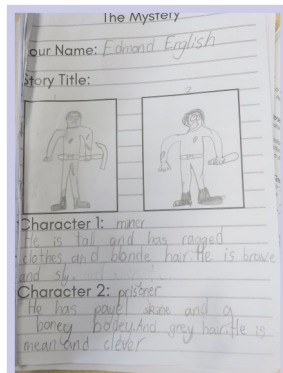 The Mystery
our Name: Edmond English
Story Title:
1 2
Character 1: miner
He is tall and has ragged
clothes and blonde hair. He is brave
and sly.
Character 2: prisoner
He has pavel skone and a
boney bodey. And grey hair. He is
mean and clever